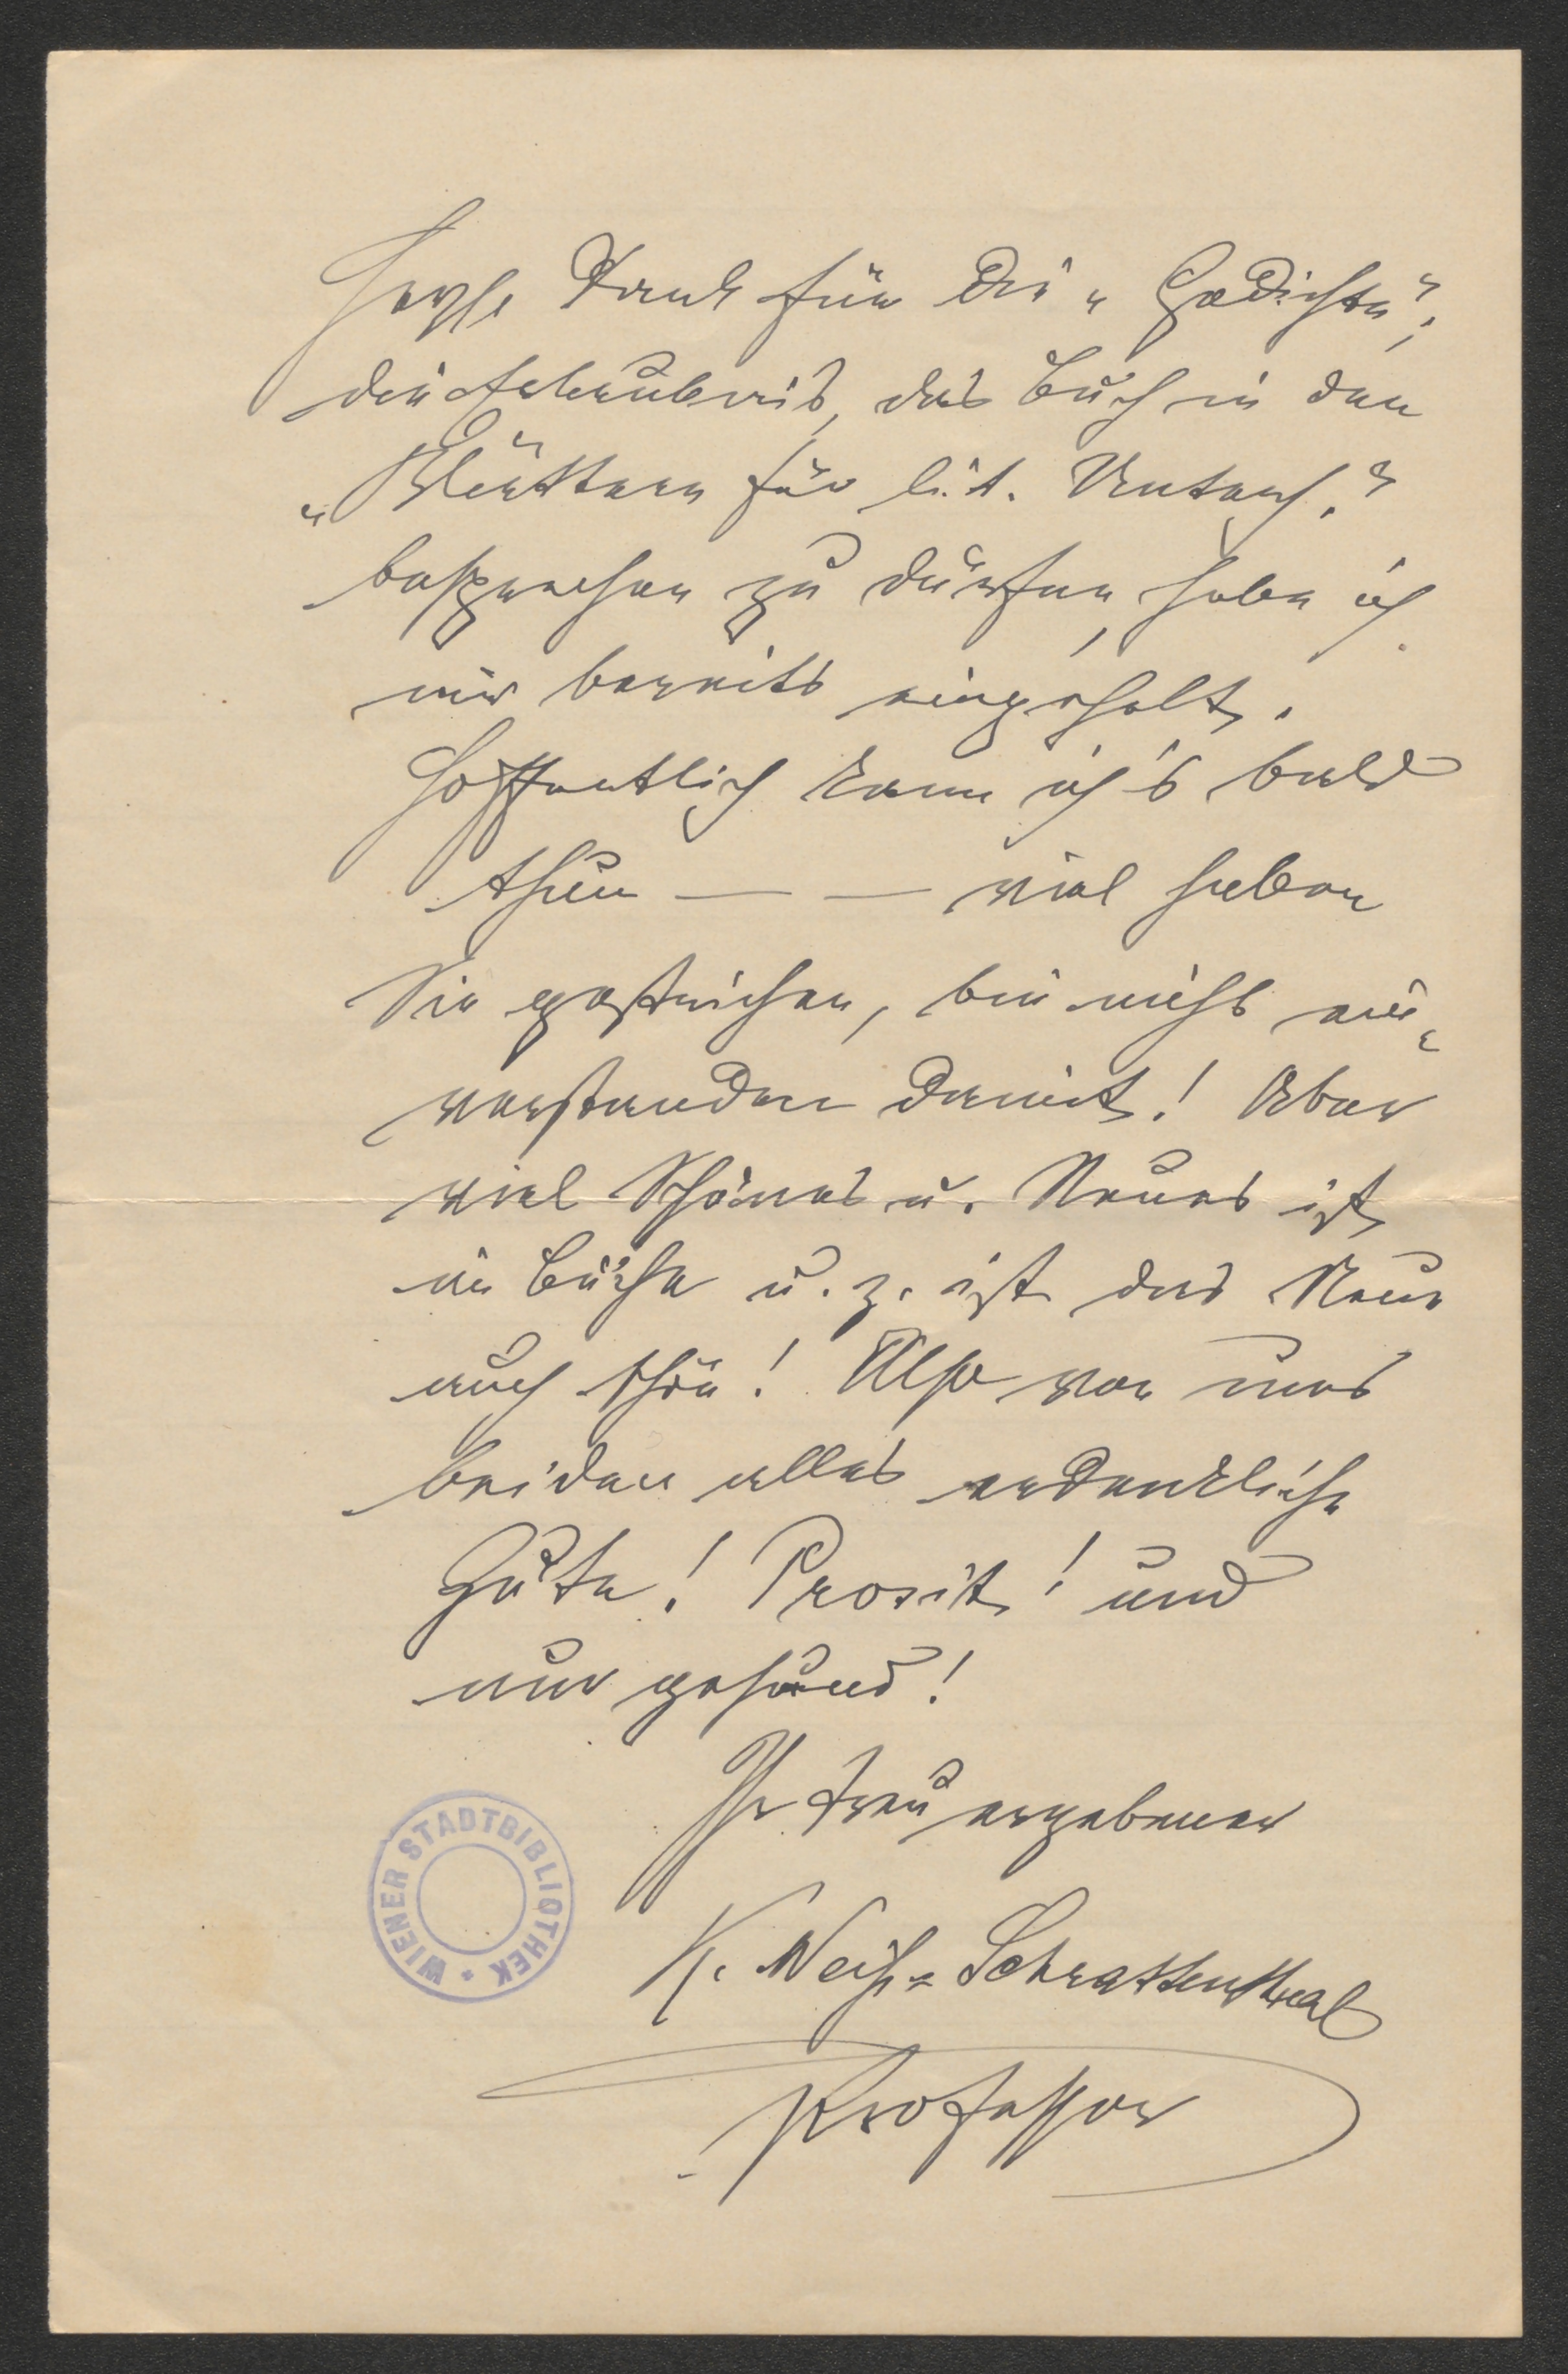 Herzl. Dank für die „Gedichte“;
die Erlaubnis, das Buch in den
„Blättern für lit. Unterh.“
besprechen zu dürfen, habe ich
mir bereits eingeholt.
Hoffentlich kann ich's bald
thun — — viel haben
Sie gestrichen, bin nicht ein-
verstanden damit! Aber
viel Schönes u. Neues ist
im Buche u. z. ist das Neue
auch schön! Also von uns
beiden alles erdenkliche
Gute! Prosit! und
nur gesund!
Ihr treu ergebener
K. Weiß-Schrattenthal
Professor
WIENER STADTBIBLIOTHEK